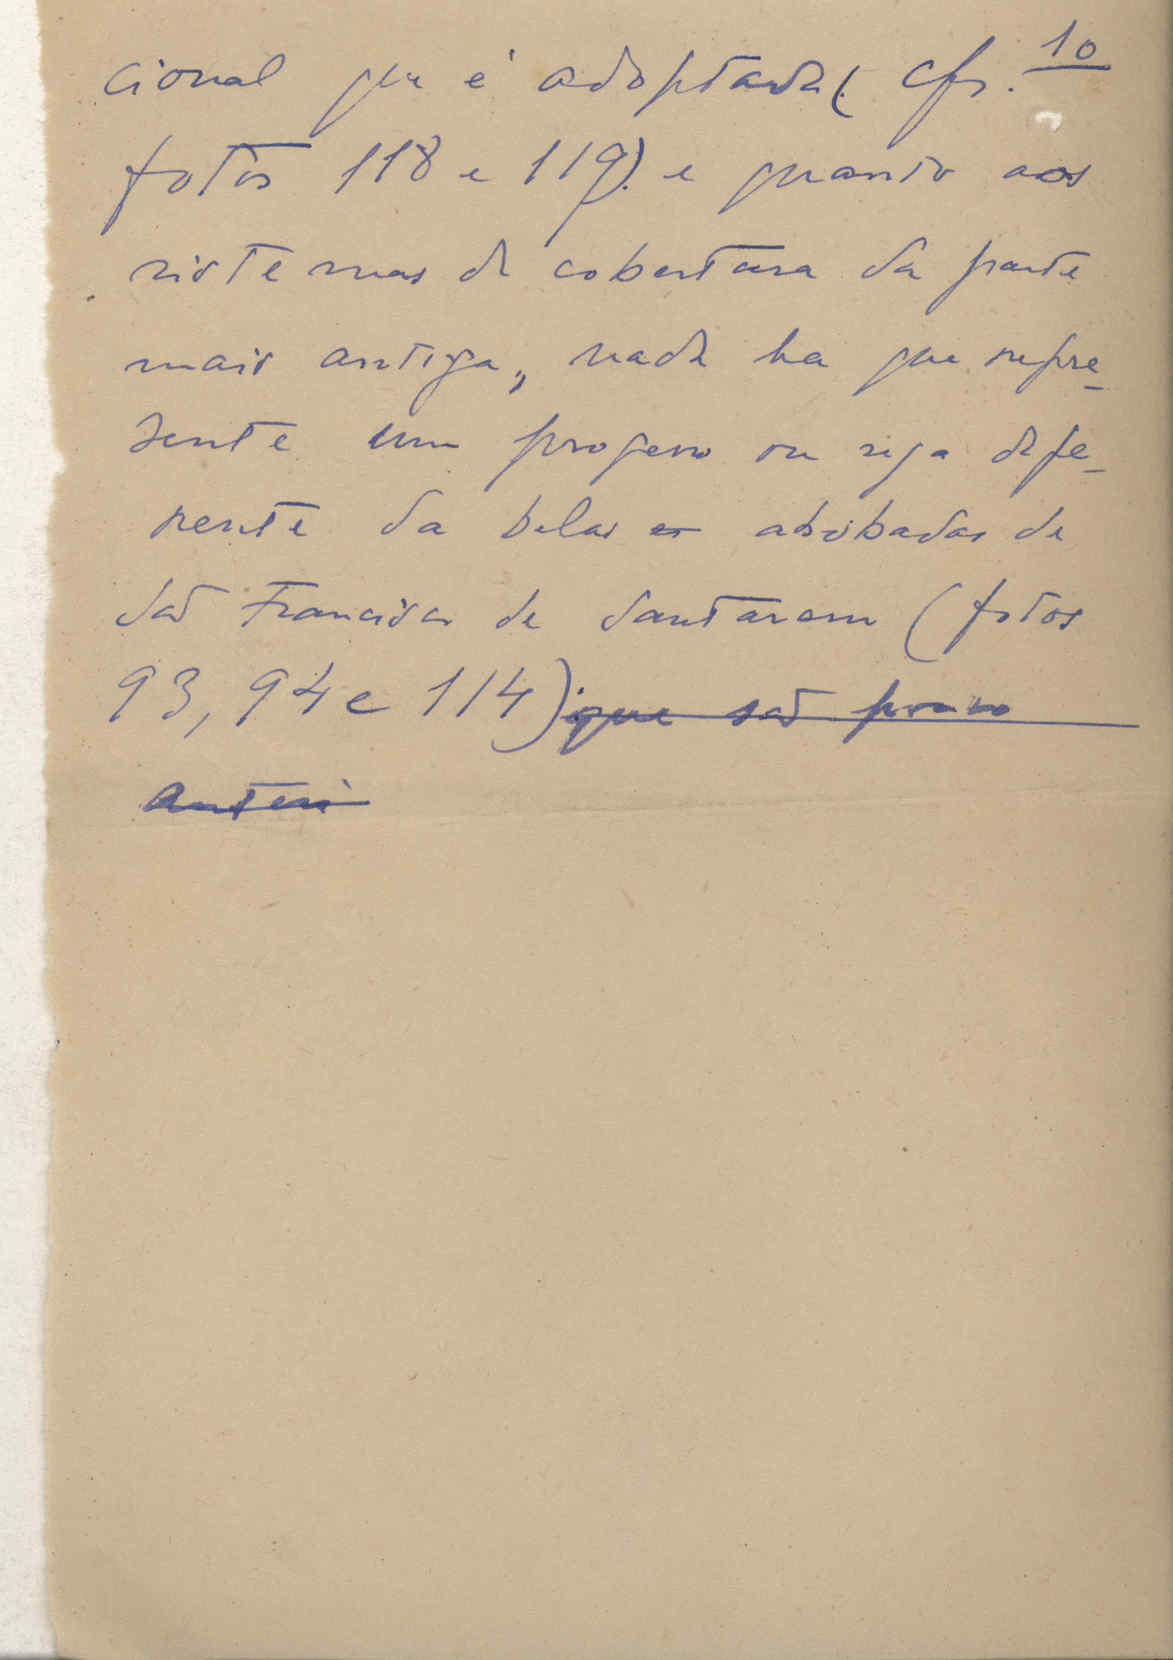 10
cional que é adoptada (cfr.
fotos 118 e 119) e quanto aos
sistemas de cobertura da parte
mais antiga, nada ha que repre-
sente um progresso ou seja dife-
rente da belas abobadas de
São Francisco de Santarem (fotos
93, 94 e 114) que são pouco
anteri